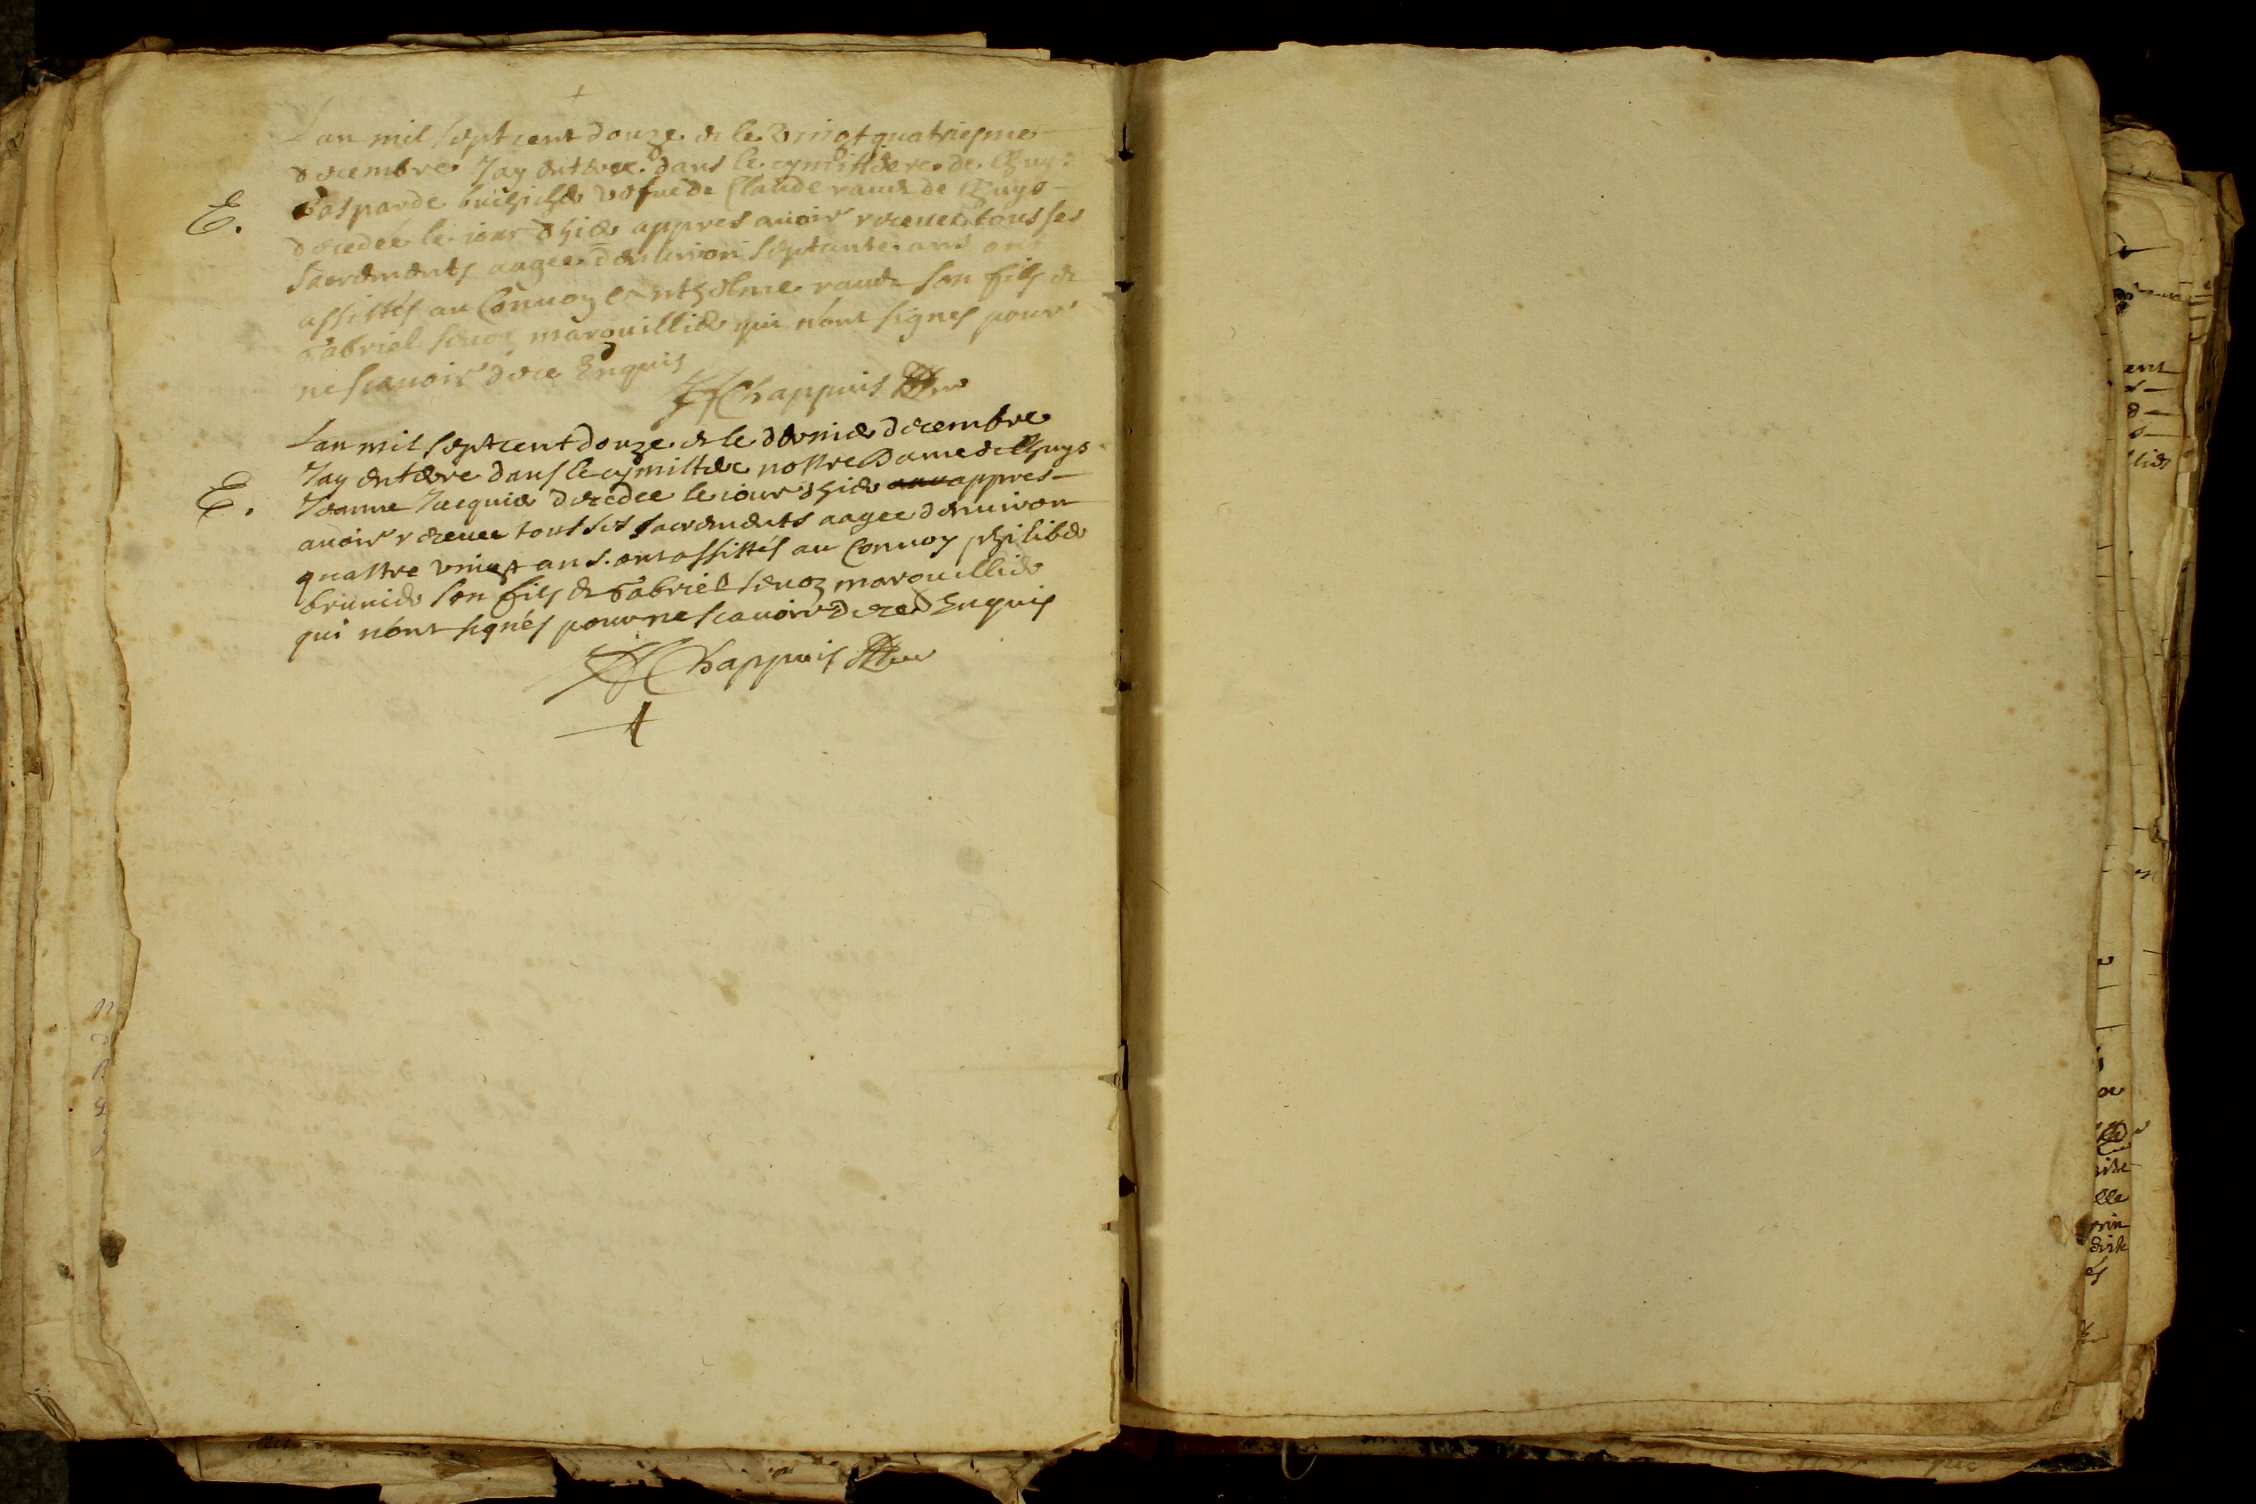 Lan mil sept cent douze et le vingt quatriesme
decembre Jay enterre dans le cymittere de Chuys
E. Gasparde vefue de Claude raude de Chuys
decedee le iour dhier appres auoir receuee tous ses
sacrements aagee denuiron septante ans ont
assistés au Conuoy Anthelme raude son fils et
Gabriel seuoz marguillier qui nont signes pour
ne scauoir de ce Enquis
Chappuis
Lan mil sept cent douze et le dernier decembre
Jay enterre dans le cymittere nostre Dame de Chuys
E. Jeanne Jacquier decedee le iour dhier appres
auoir receuee tous ses sacrements aagee denuiron
quattre vingt ans. ont assistés au Conuoy philiber
brunier son fils et Gabriel seuoz marguillier
qui nont signés pour ne scauoir de ce Enquis
Chappuis